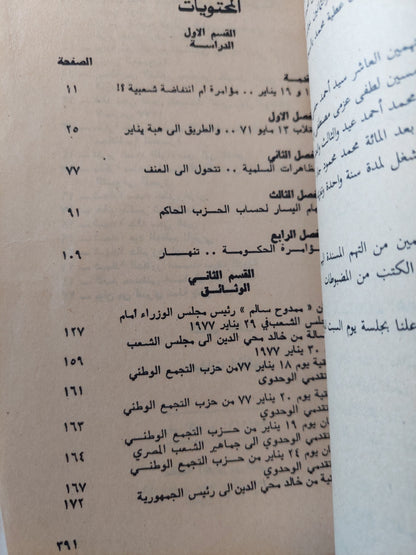 المحتويات
القسم الاول
الدراسة
الصفحة
١٩ يناير .. مؤامرة أم انتفاضة شعبية ؟! ١١
الاول
١٣ مايو ٧١ .. والطريق الى هبة يناير ٢٥
الثاني
السلمية .. تتحول الى العنف ٧٧
الثالث
اليسار لحساب الحزب الحاكم ٩١
الرابع
الحكومة .. تنهار ١٠٩
القسم الثاني
الوثائق
« ممدوح سالم » رئيس مجلس الوزراء أمام
الشعب في ٢٩ يناير ١٩٧٧ ١٢٧
من خالد محي الدين الى مجلس الشعب
٣٠ يناير ١٩٧٧ ١٥٩
يوم ١٨ يناير ٧٧ من حزب التجمع الوطني
الوحدوي ١٦١
يوم ٢٠ يناير ٧٧ من حزب التجمع الوطني
الوحدوي ١٦٣
يوم ١٩ يناير من حزب التجمع الوطني
الوحدوي الى جماهير الشعب المصري ١٦٤
يوم ٢٤ يناير من حزب التجمع الوطني
الوحدوي ١٦٧
من خالد محي الدين الى رئيس الجمهورية ١٧٢
٣٩١
العاشر سيد أحمد
لطفي عزمي
محمد أحمد عيد والثالث
بعد المائة محمد محمود
شغل لمدة سنة واحدة
من التهم المسندة
الكتب من المضبوطات
علنا بجلسة يوم السبت